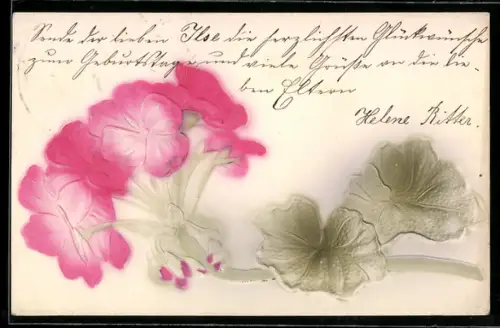 Sende der lieben Ilse die herzlichsten Glückwünsche
zum Geburtstage und viele Grüße an die lie-
ben Eltern
Helene Ritter.